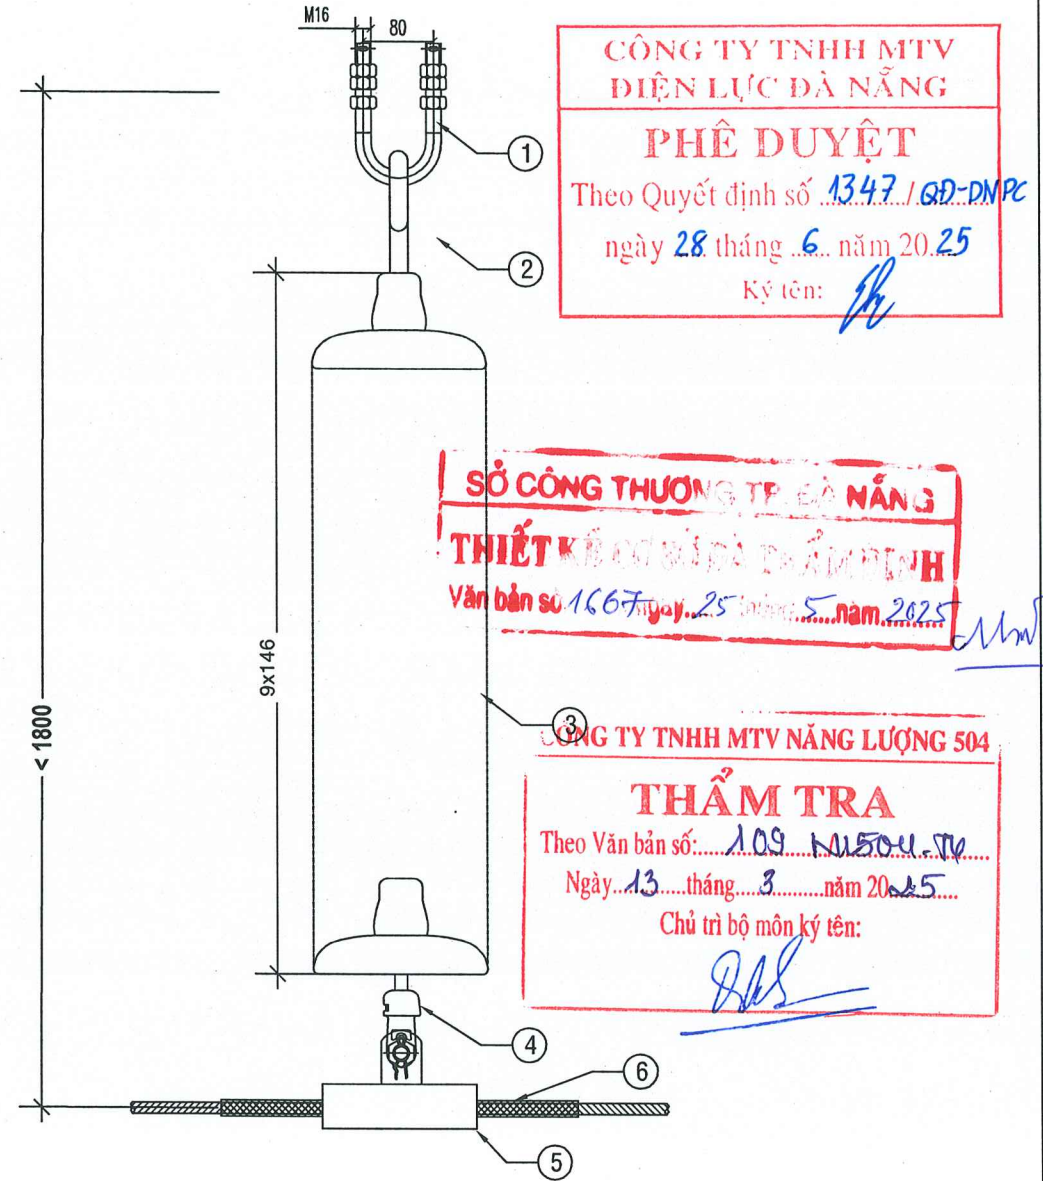 M16
80
1
2
CÔNG TY TNHH MTV
ĐIỆN LỰC ĐÀ NẴNG
PHÊ DUYỆT
Theo Quyết định số 1347 / QĐ-DNPC
ngày 28 tháng 6 năm 2025
Ký tên:
SỞ CÔNG THƯƠNG TP. ĐÀ NẴNG
THIẾT KẾ CƠ SỞ ĐÃ THẨM ĐỊNH
Văn bản số 1667 ngày 25 tháng 5 năm 2025
9x146
< 1800
3
CÔNG TY TNHH MTV NĂNG LƯỢNG 504
THẨM TRA
Theo Văn bản số: 109
Ngày 13 tháng 3 năm 2025
Chủ trì bộ môn ký tên:
4
6
5